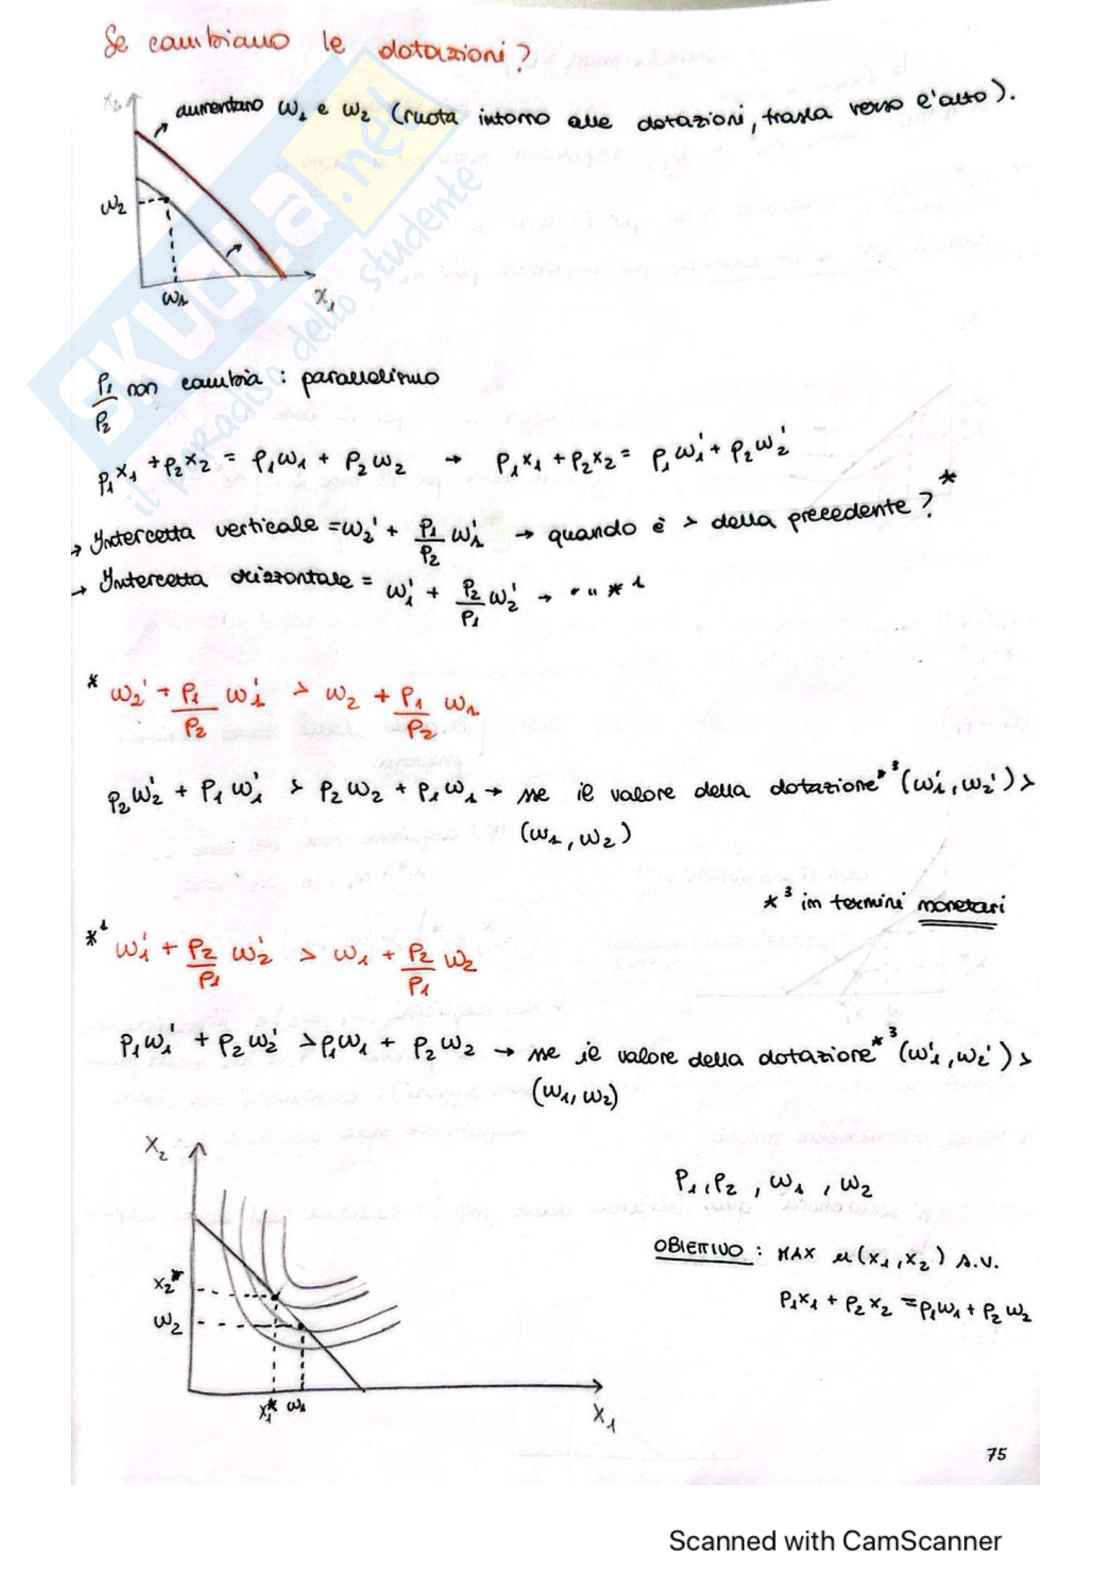 Se cambiano le dotazioni?
x2
aumentano ω1 e ω2 (ruota intorno alle dotazioni, trasla verso l'alto).
ω2
ω1
x1
SKUOLA.net
il paradiso dello studente
p1/p2 non cambia : parallelismo
p1x1 + p2x2 = p1ω1 + p2ω2 → p1x1 + p2x2 = p1ω1' + p2ω2'
→ Intercetta verticale = ω2' + p1/p2 ω1' → quando è > della precedente? *
→ Intercetta orizzontale = ω1' + p2/p1 ω2' → " " *1
* ω2' + p1/p2 ω1' > ω2 + p1/p2 ω1
p2ω2' + p1ω1' > p2ω2 + p1ω1 → se il valore della dotazione*3 (ω1', ω2') >
(ω1, ω2)
*3 in termini monetari
*1 ω1' + p2/p1 ω2' > ω1 + p2/p1 ω2
p1ω1' + p2ω2' > p1ω1 + p2ω2 → se il valore della dotazione*3 (ω1', ω2') >
(ω1, ω2)
x2
p1, p2, ω1, ω2
OBIETTIVO : MAX u(x1, x2) s.v.
x2*
p1x1 + p2x2 = p1ω1 + p2ω2
ω2
x1* ω1
x1
75
Scanned with CamScanner